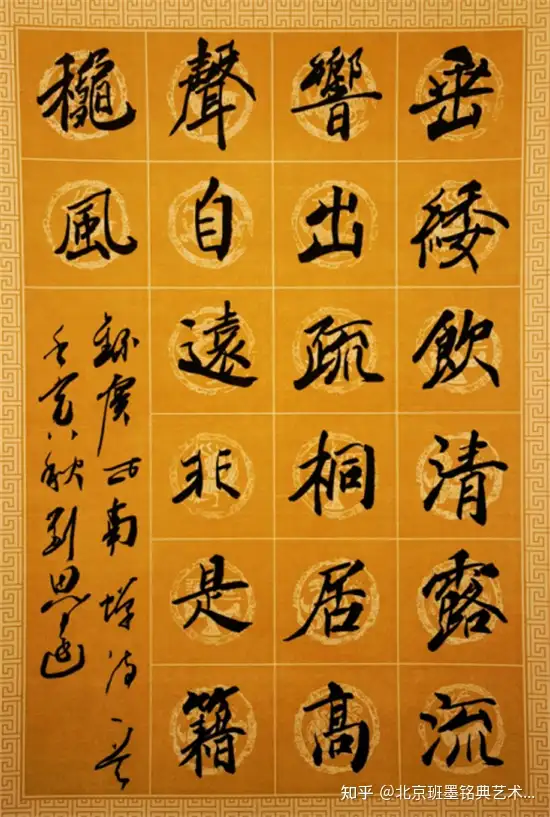 垂緌飲清露流
響出疏桐居高
聲自遠非是籍
穐風
録虞世南蟬诗一首
壬寅秋刘思
知乎 @北京班墨铭典艺术...